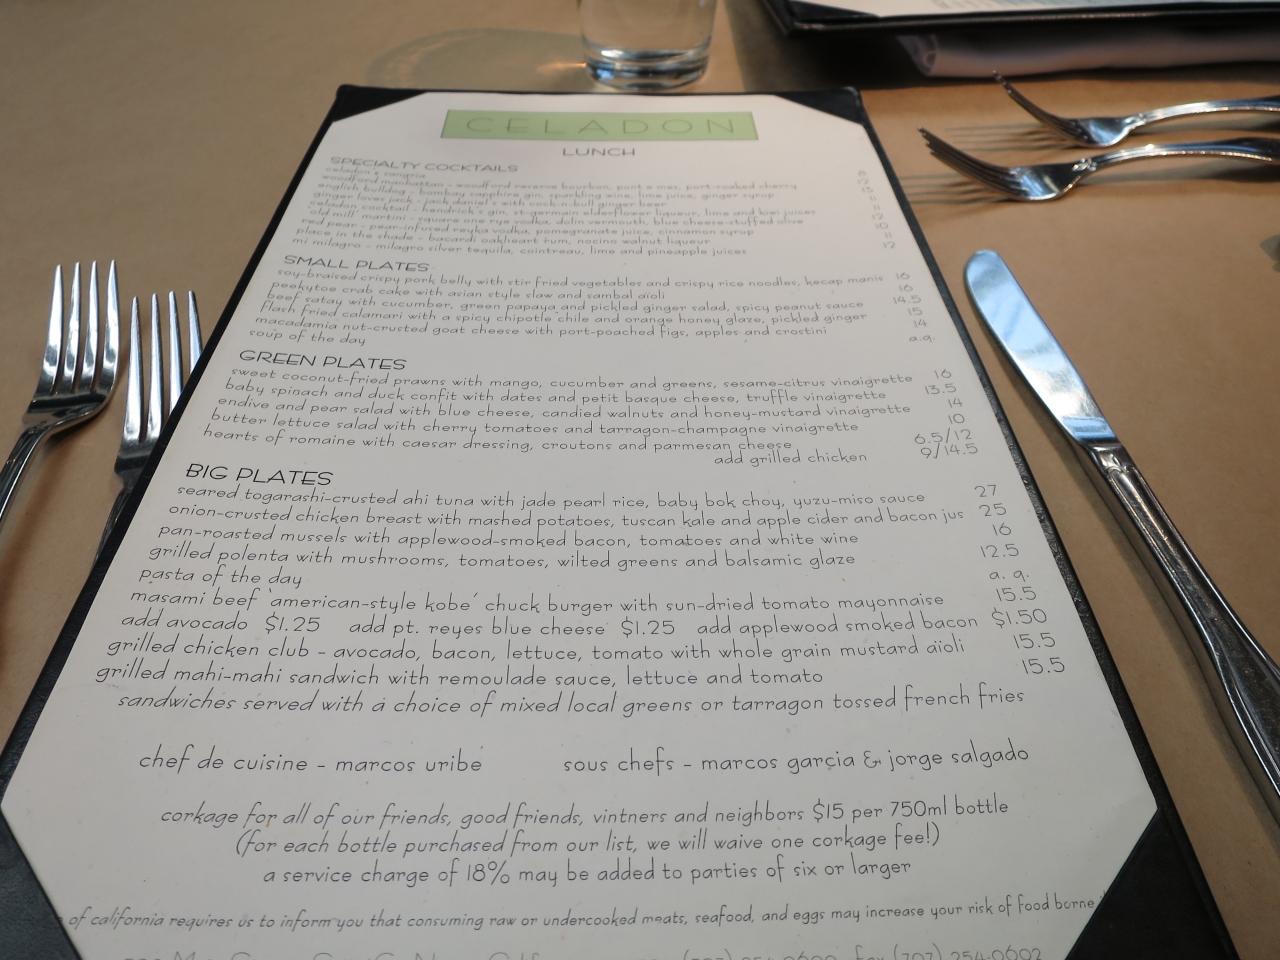 CELADON
LUNCH
SPECIALTY COCKTAILS
celadon's sangria 8
woodford manhattan - woodford reserve bourbon, punt e mes, port-soaked cherry 12
english bulldog - bombay sapphire gin, sparkling wine, lime juice, ginger syrup 13
ginger loves jack - jack daniel's with cock n bull ginger beer 11
celadon cocktail - hendrick's gin, st-germain elderflower liqueur, lime and kiwi juices 11
'old mill' martini - square one rye vodka, dolin vermouth, blue cheese-stuffed olive 12
red pear - pear-infused reyka vodka, pomegranate juice, cinnamon syrup 10
place in the shade - bacardi oakheart rum, nocino walnut liqueur 11
mi milagro - milagro silver tequila, cointreau, lime and pineapple juices 12
SMALL PLATES
soy-braised crispy pork belly with stir fried vegetables and crispy rice noodles, kecap manis 16
peekytoe crab cake with asian style slaw and sambal aïoli 16
beef satay with cucumber, green papaya and pickled ginger salad, spicy peanut sauce 14.5
flash fried calamari with a spicy chipotle chile and orange honey glaze, pickled ginger 15
macadamia nut-crusted goat cheese with port-poached figs, apples and crostini 14
soup of the day a.q.
GREEN PLATES
sweet coconut-fried prawns with mango, cucumber and greens, sesame-citrus vinaigrette 16
baby spinach and duck confit with dates and petit basque cheese, truffle vinaigrette 13.5
endive and pear salad with blue cheese, candied walnuts and honey-mustard vinaigrette 14
butter lettuce salad with cherry tomatoes and tarragon-champagne vinaigrette 10
hearts of romaine with caesar dressing, croutons and parmesan cheese 6.5/12
add grilled chicken 9/14.5
BIG PLATES
seared togarashi-crusted ahi tuna with jade pearl rice, baby bok choy, yuzu-miso sauce 27
onion-crusted chicken breast with mashed potatoes, tuscan kale and apple cider and bacon jus 25
pan-roasted mussels with applewood-smoked bacon, tomatoes and white wine 16
grilled polenta with mushrooms, tomatoes, wilted greens and balsamic glaze 12.5
pasta of the day a. q.
masami beef 'american-style kobe' chuck burger with sun-dried tomato mayonnaise 15.5
add avocado $1.25 add pt. reyes blue cheese $1.25 add applewood smoked bacon $1.50
grilled chicken club - avocado, bacon, lettuce, tomato with whole grain mustard aïoli 15.5
grilled mahi-mahi sandwich with remoulade sauce, lettuce and tomato 15.5
sandwiches served with a choice of mixed local greens or tarragon tossed french fries
chef de cuisine - marcos uribe sous chefs - marcos garcia & jorge salgado
corkage for all of our friends, good friends, vintners and neighbors $15 per 750ml bottle
(for each bottle purchased from our list, we will waive one corkage fee!)
a service charge of 18% may be added to parties of six or larger
of california requires us to inform you that consuming raw or undercooked meats, seafood, and eggs may increase your risk of food borne